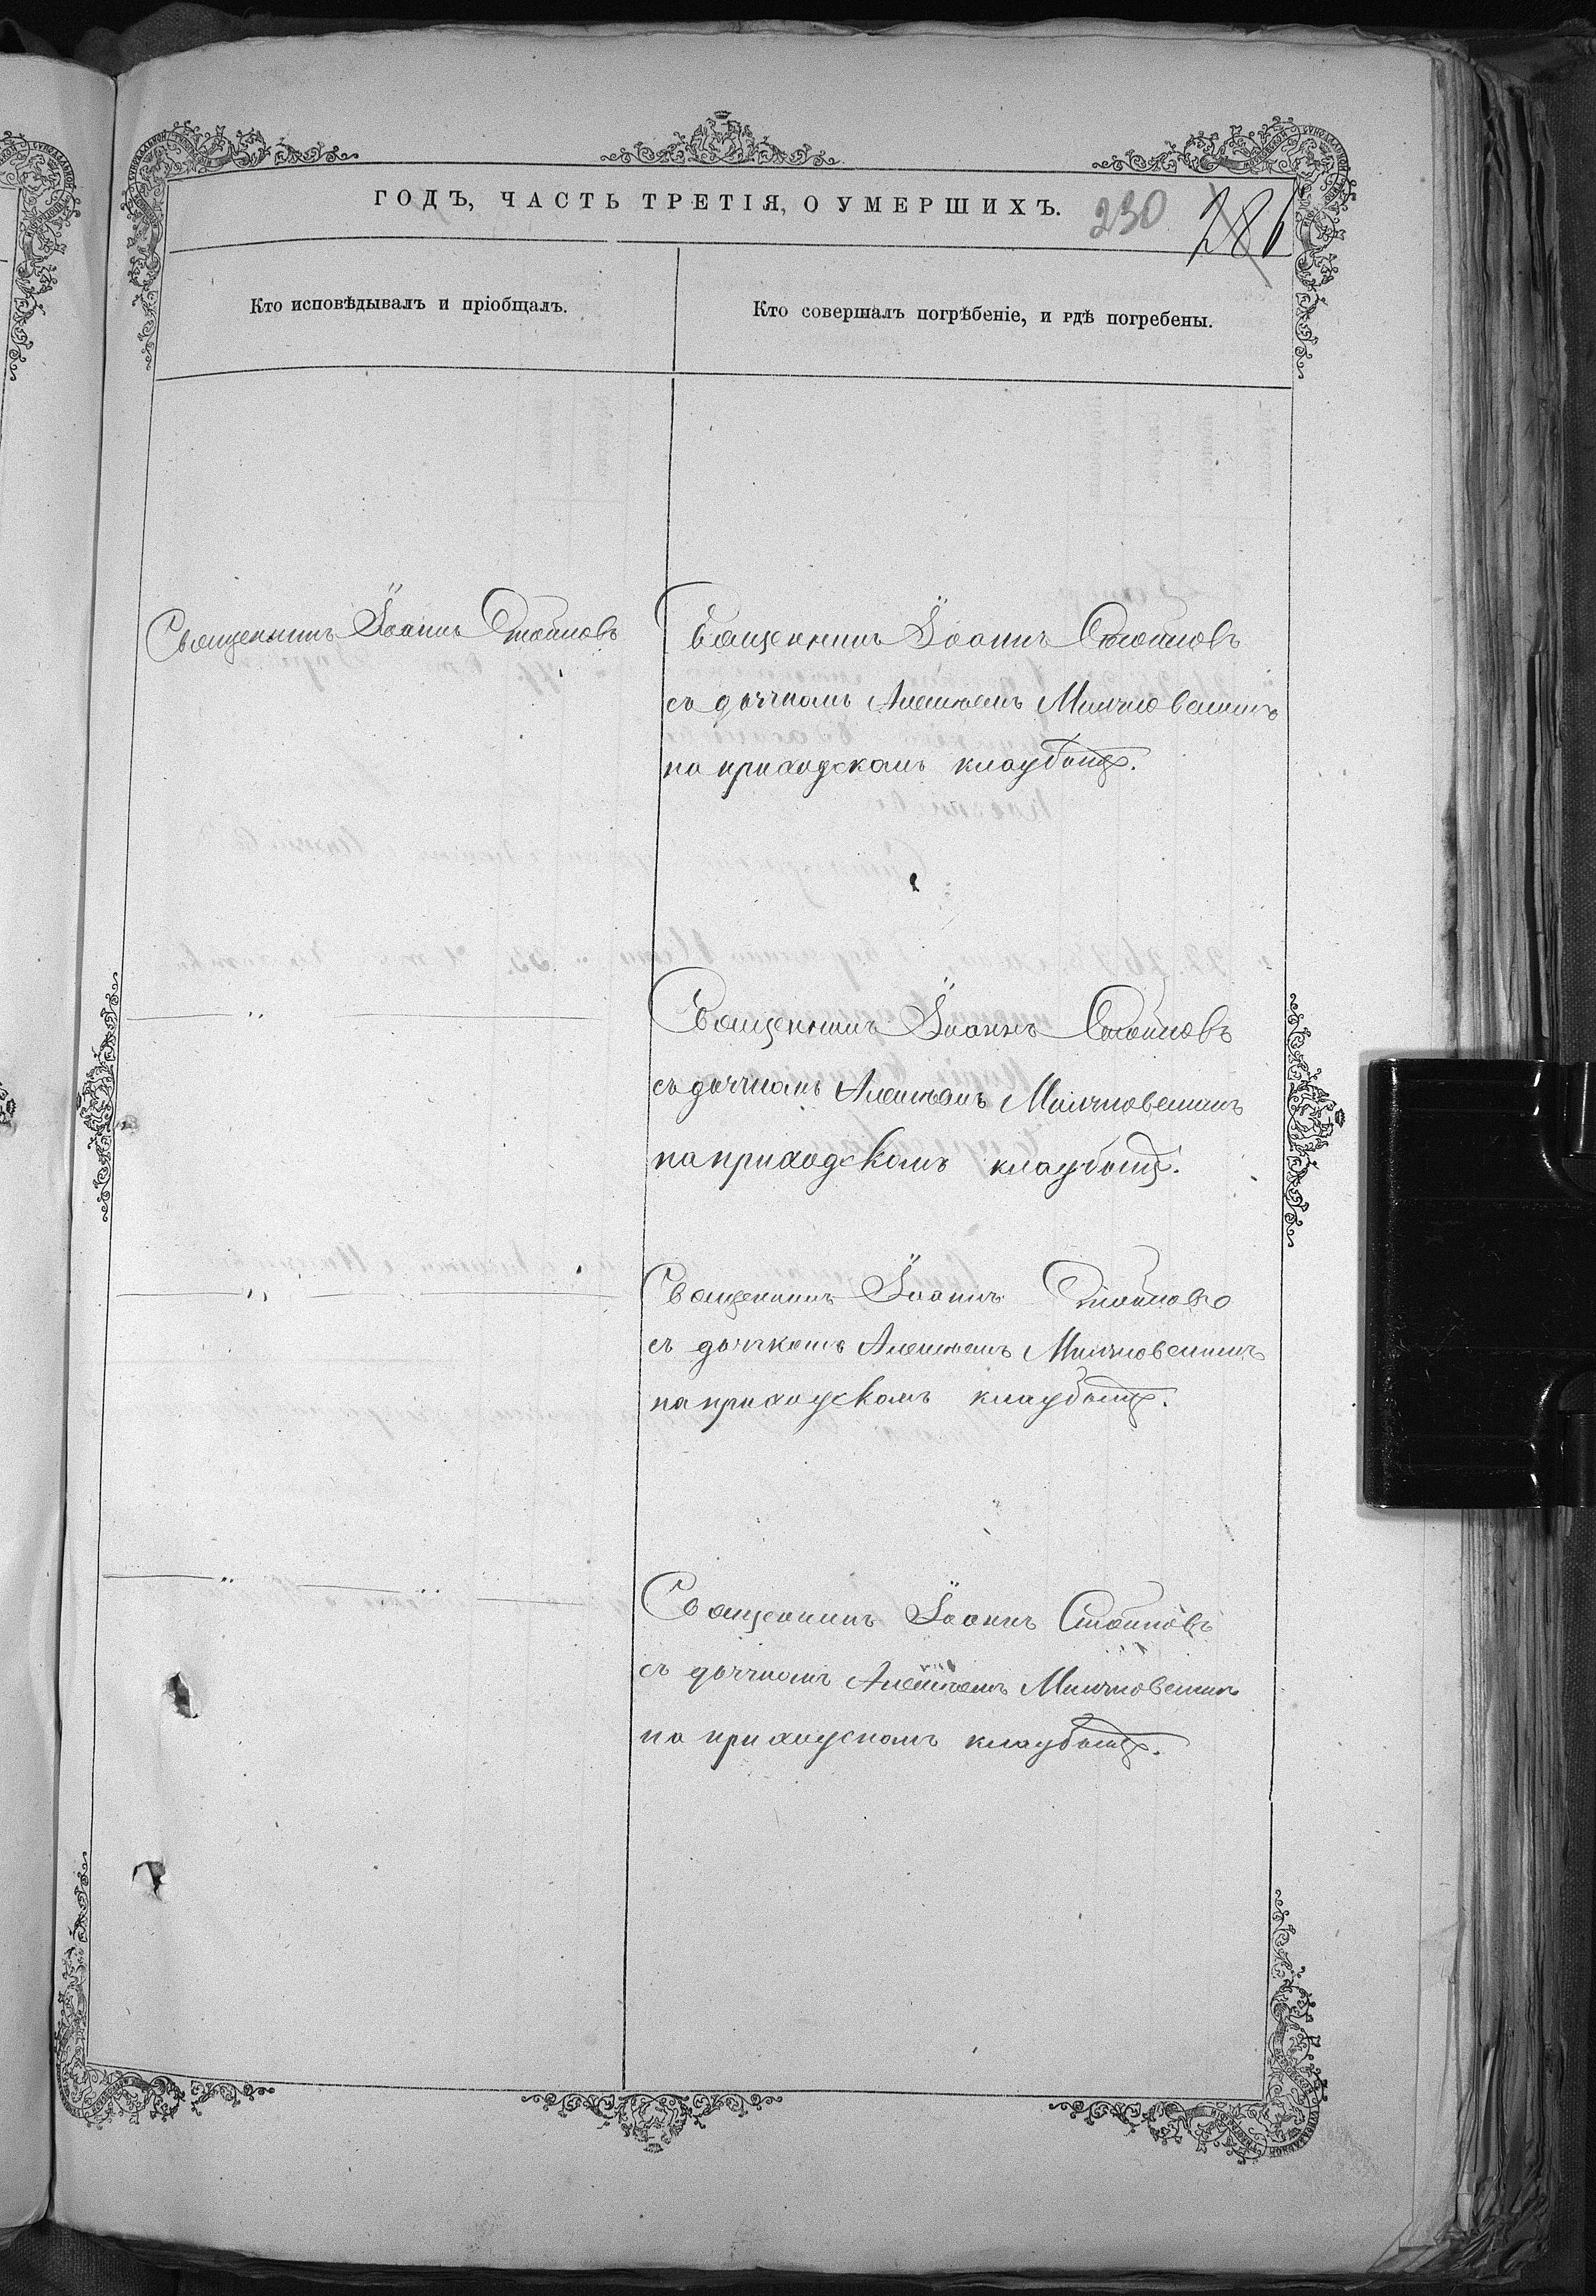 ГОДЪ, ЧАСТЬ ТРЕТІЯ, О УМЕРШИХЪ.
230
286
Кто исповѣдывалъ и пріобщалъ.
Кто совершалъ погрѣбеніе, и гдѣ погребены.
Священникъ Іоаннъ Стоиковъ
Священникъ Іоаннъ Стоиковъ
съ дьячкомъ Алексѣемъ
на приходскомъ кладбищѣ.
Священникъ Іоаннъ Стоиковъ
съ дьячкомъ Алексѣемъ
на приходскомъ кладбищѣ.
Священникъ Іоаннъ Стоиковъ
съ дьячкомъ Алексѣемъ
на приходскомъ кладбищѣ.
Священникъ Іоаннъ Стоиковъ
съ дьячкомъ Алексѣемъ
на приходскомъ кладбищѣ.